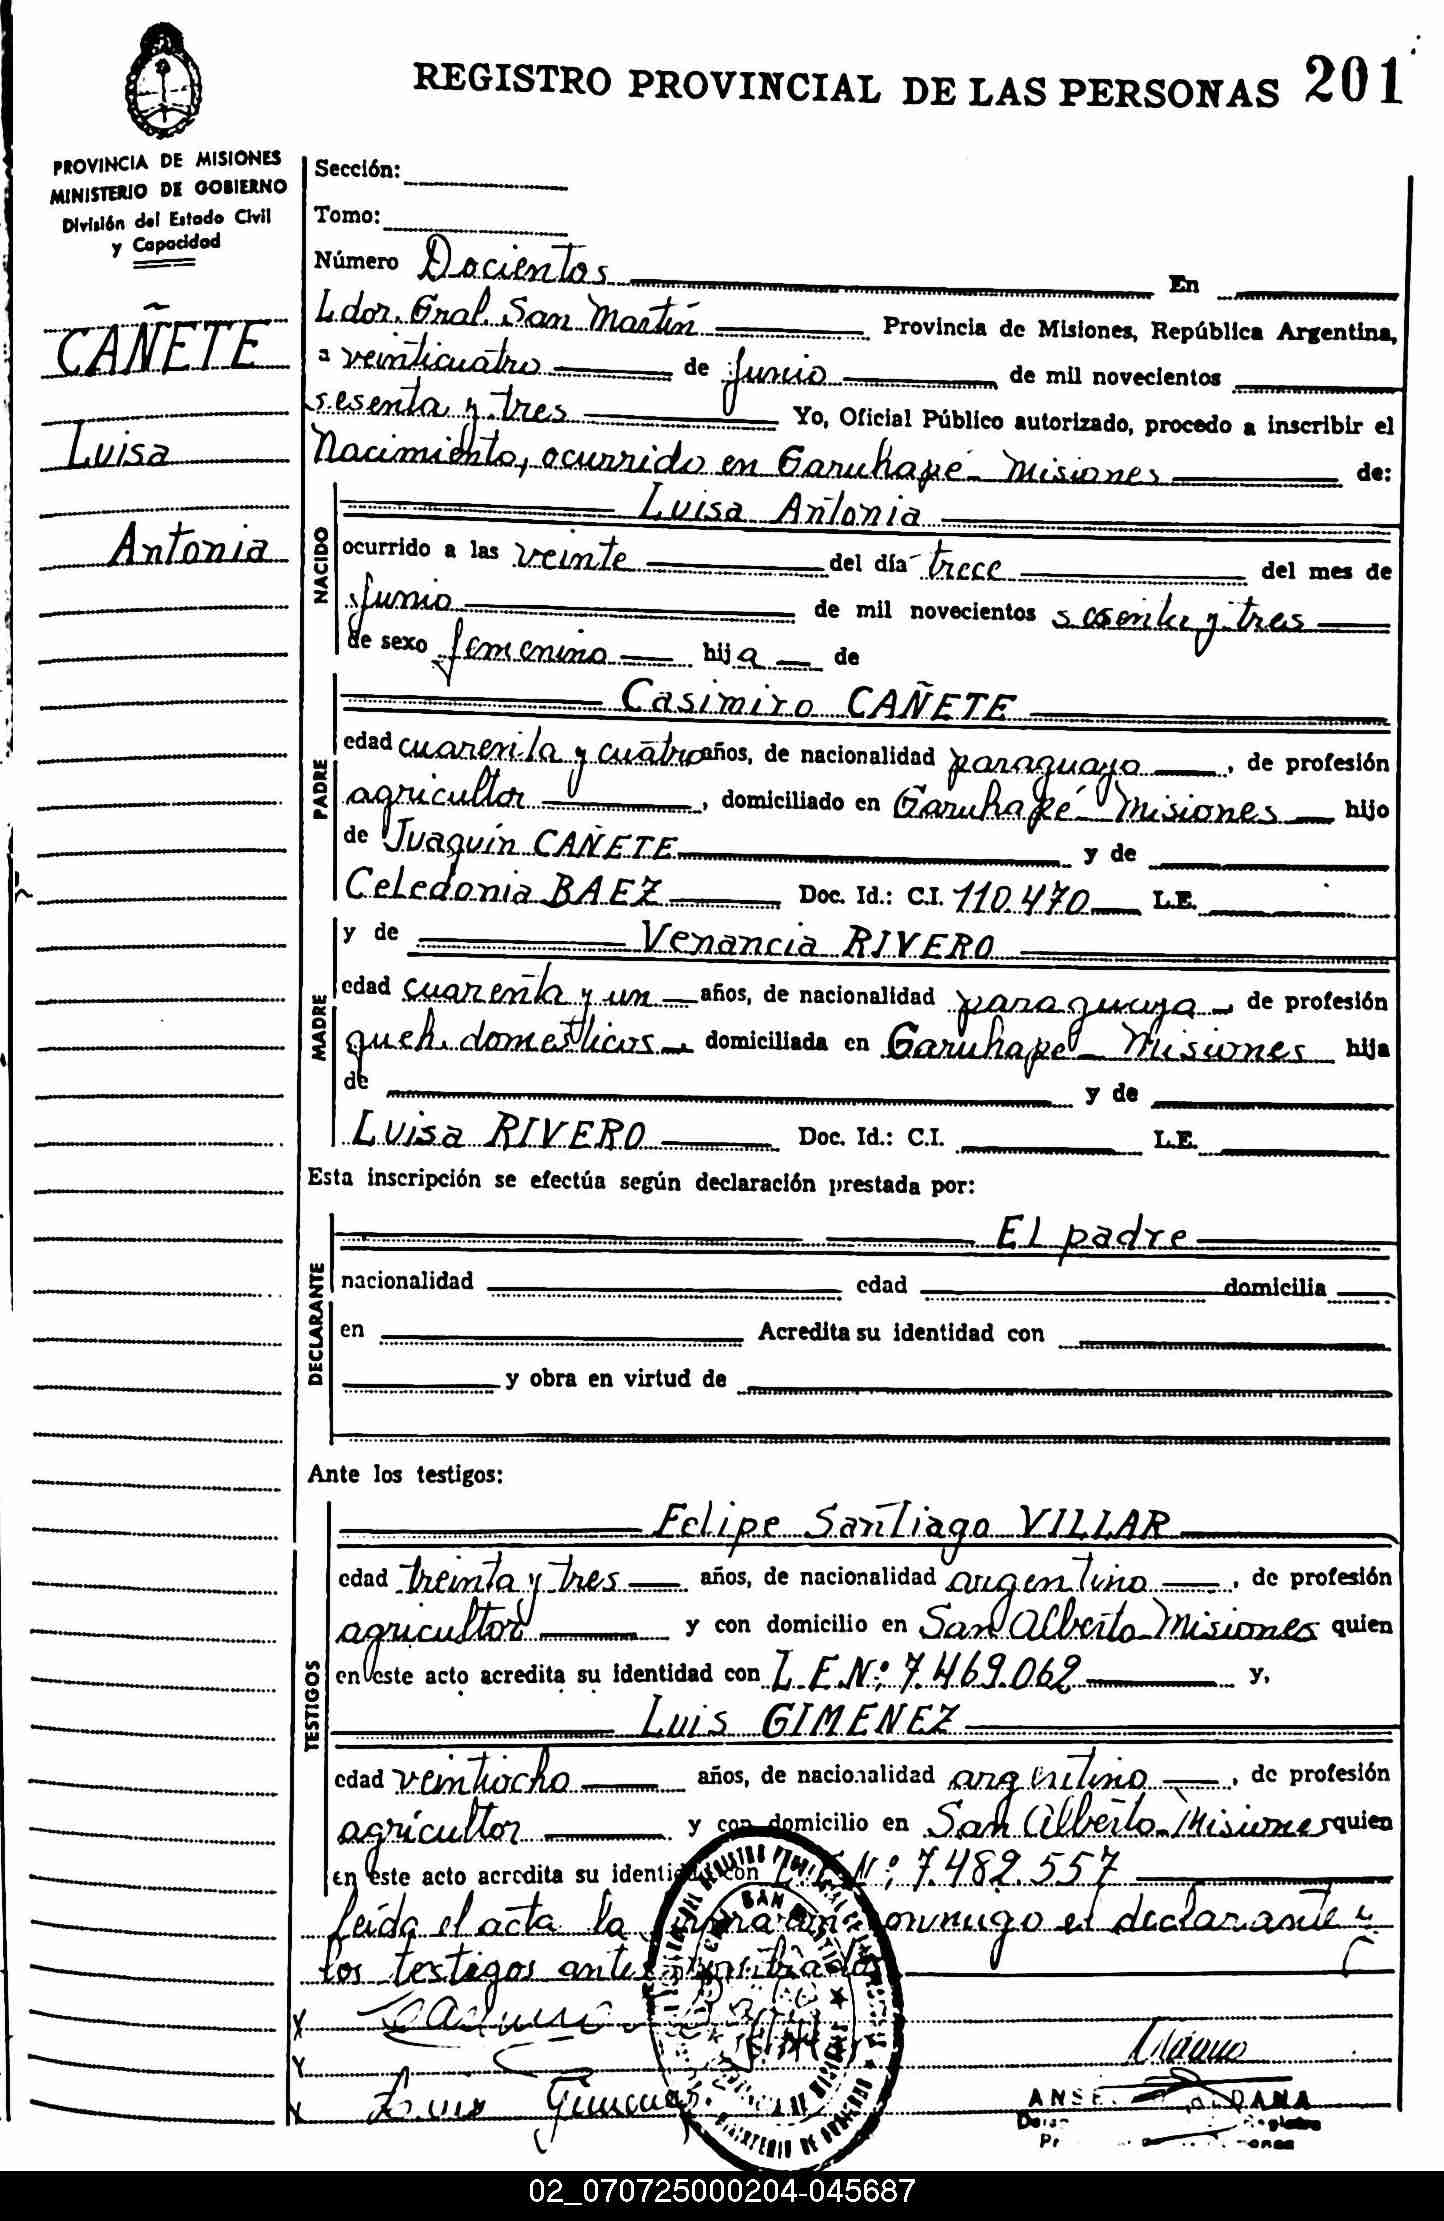 REGISTRO PROVINCIAL DE LAS PERSONAS 201
PROVINCIA DE MISIONES
MINISTERIO DE GOBIERNO
División del Estado Civil
y Capacidad
CAÑETE
Luisa
Antonia
Sección:
Tomo:
Número Docientos En
Ldor. Gral. San Martín Provincia de Misiones, República Argentina,
a veinticuatro de Junio de mil novecientos
sesenta y tres Yo, Oficial Público autorizado, procedo a inscribir el
Nacimiento, ocurrido en Garuhapé - Misiones de:
NACIDO
Luisa Antonia
ocurrido a las veinte del día trece del mes de
Junio de mil novecientos sesenta y tres
de sexo femenino hija de
PADRE
Casimiro CAÑETE
edad cuarenta y cuatro años, de nacionalidad paraguayo, de profesión
agricultor, domiciliado en Garuhapé - Misiones hijo
de Juaquín CAÑETE y de
Celedonia BAEZ Doc. Id.: C.I. 110.470 L.E.
MADRE
y de Venancia RIVERO
edad cuarenta y un años, de nacionalidad paraguaya, de profesión
queh. domesticos, domiciliada en Garuhapé - Misiones hija
de y de
Luisa RIVERO Doc. Id.: C.I. L.E.
Esta inscripción se efectúa según declaración prestada por:
DECLARANTE
El padre
nacionalidad edad domicilia
en Acredita su identidad con
y obra en virtud de
Ante los testigos:
TESTIGOS
Felipe Santiago VILLAR
edad treinta y tres años, de nacionalidad argentino, de profesión
agricultor y con domicilio en San Alberto - Misiones quien
en este acto acredita su identidad con L.E.Nº: 7.469.062 y,
Luis GIMENEZ
edad veintiocho años, de nacionalidad argentino, de profesión
agricultor y con domicilio en San Alberto - Misiones quien
en este acto acredita su identidad con L.E.Nº: 7.482.557
Leída el acta la firmaron conmigo el declarante y
los testigos antes nombrados
Luis Gimenez
02_070725000204-045687